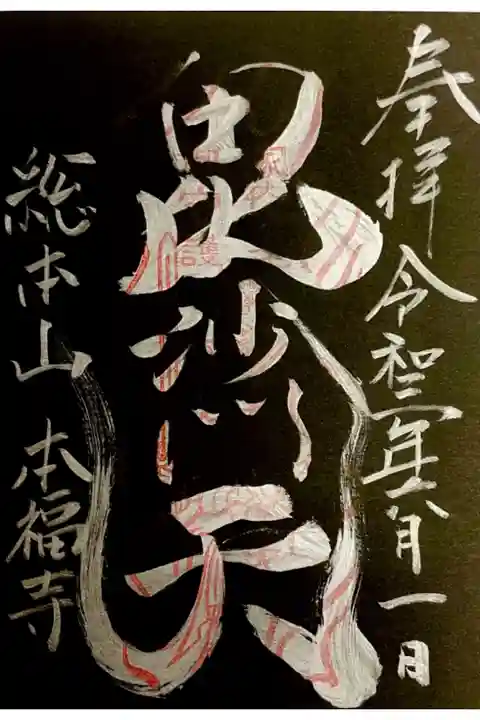 奉拝 令和三年六月一日
毘沙門天
総本山 本福寺